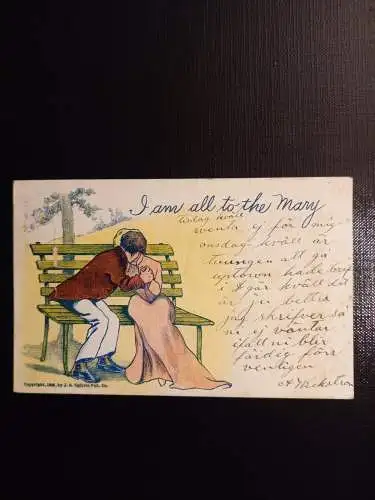 I am all to the Mary
tisdag kväll
vänta ej för mig
onsdag kväll är
tvungen att gå
uptown hade brif
i går kväll det
är ju better
jag skrifver så
ni ej väntar
ifall ni blir
färdig förr
venligen
A
Copyright, 190, by J. Pub. Co.